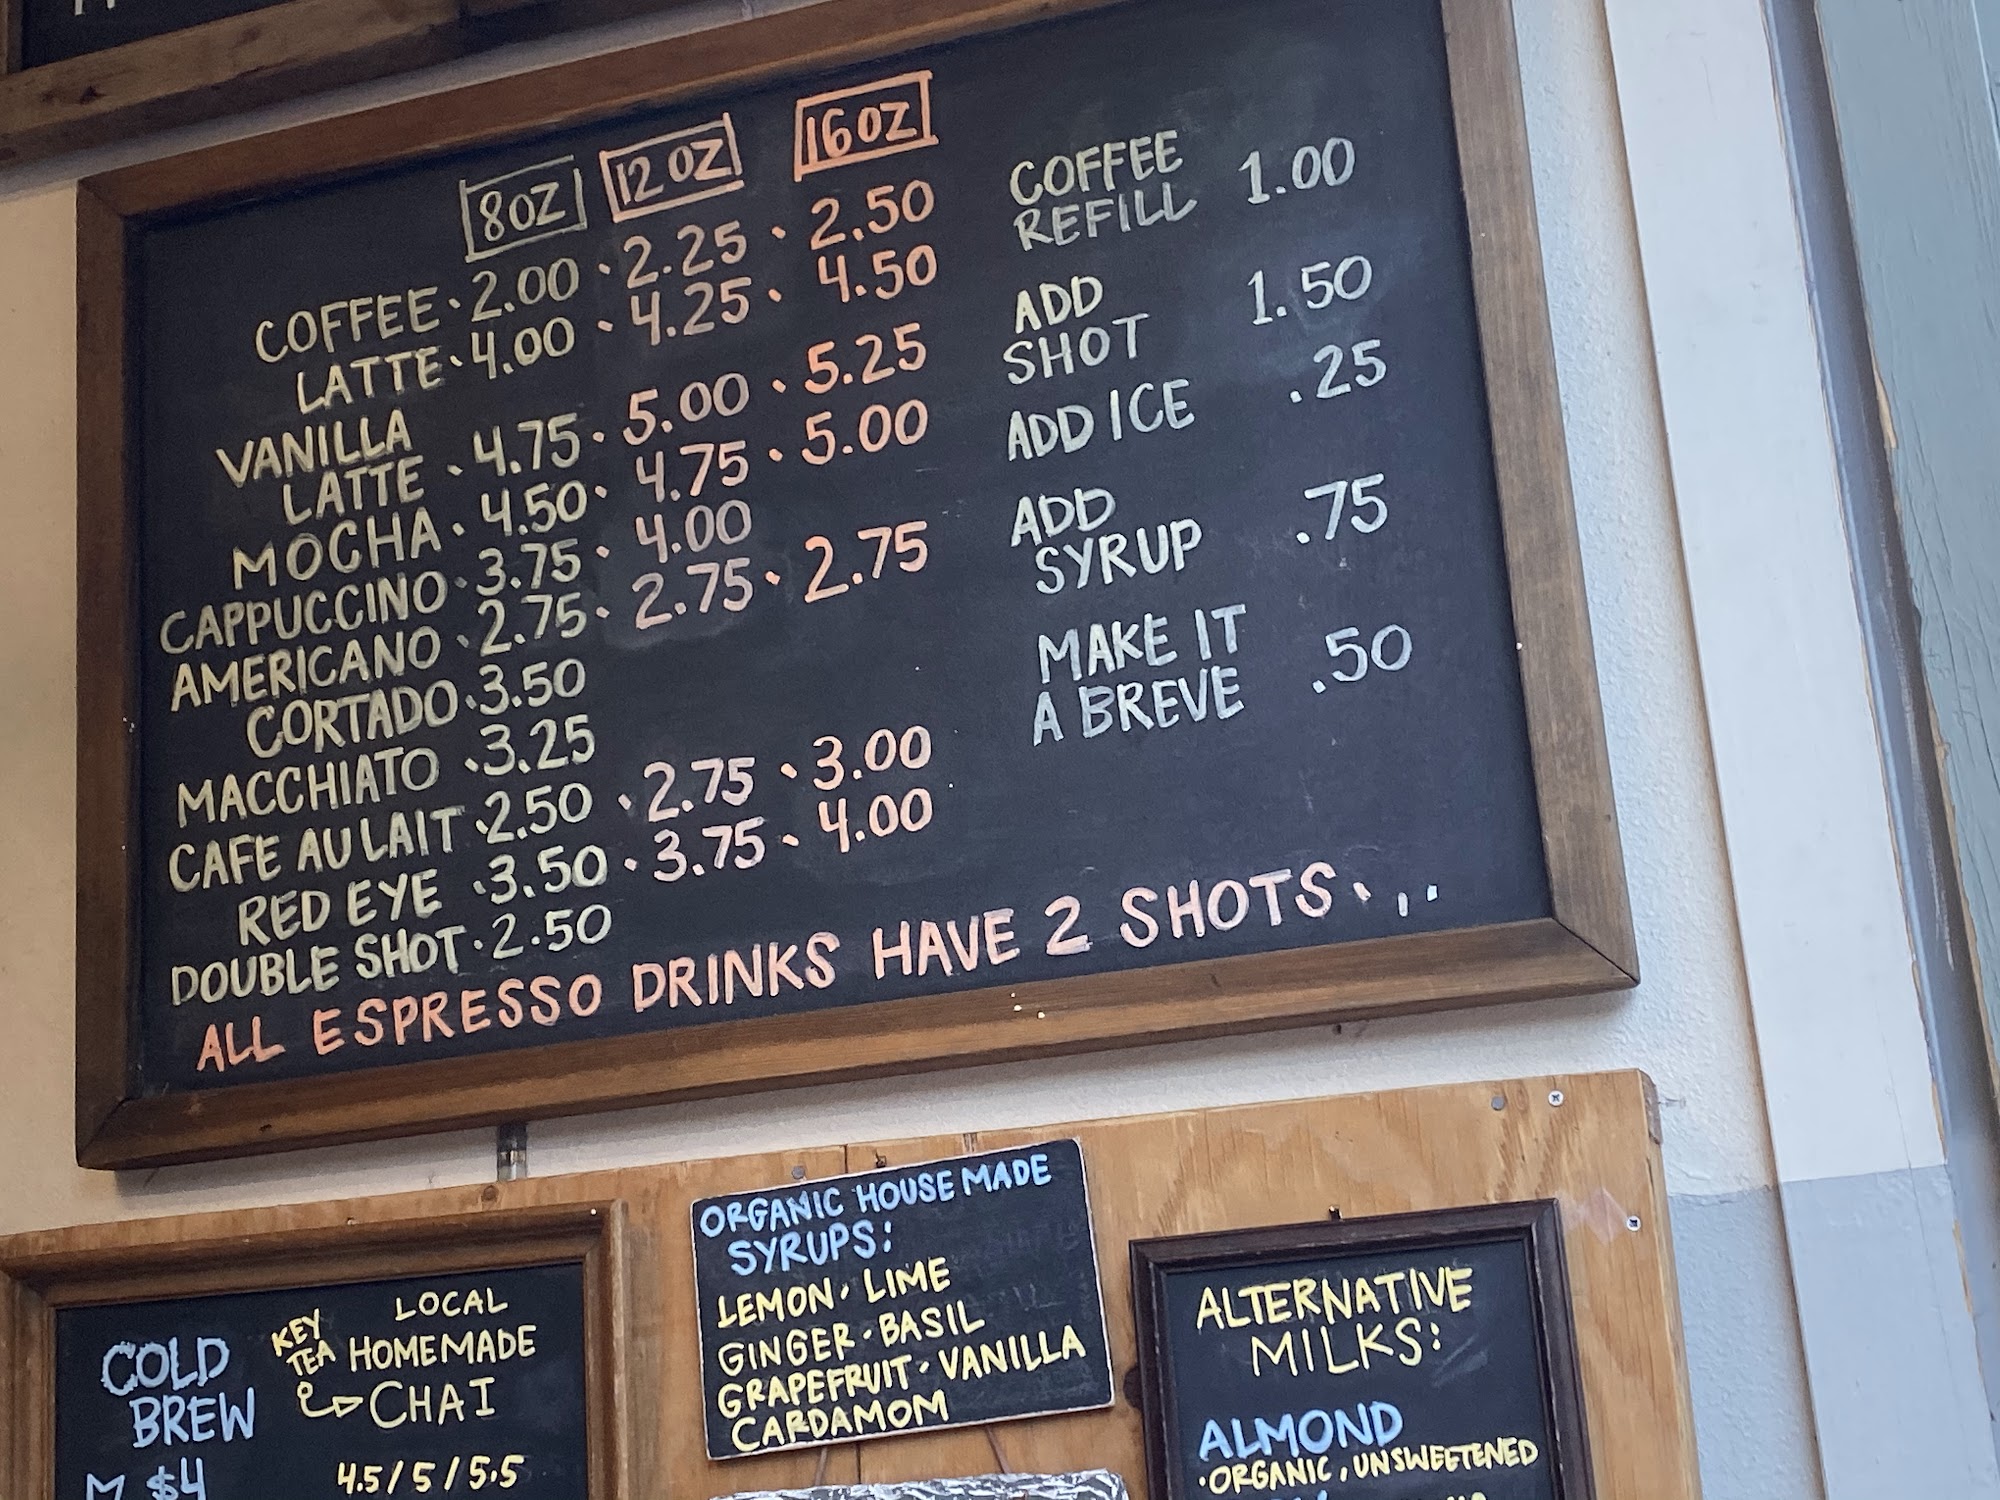 8OZ 12OZ 16OZ
COFFEE · 2.00 · 2.25 · 2.50
LATTE · 4.00 · 4.25 · 4.50
VANILLA
LATTE · 4.75 · 5.00 · 5.25
MOCHA · 4.50 · 4.75 · 5.00
CAPPUCCINO · 3.75 · 4.00
AMERICANO · 2.75 · 2.75 · 2.75
CORTADO · 3.50
MACCHIATO · 3.25
CAFE AU LAIT · 2.50 · 2.75 · 3.00
RED EYE · 3.50 · 3.75 · 4.00
DOUBLE SHOT · 2.50
COFFEE
REFILL 1.00
ADD
SHOT 1.50
ADD ICE .25
ADD
SYRUP .75
MAKE IT
A BREVE .50
ALL ESPRESSO DRINKS HAVE 2 SHOTS...
COLD
BREW
M $4
KEY
TEA
LOCAL
HOMEMADE
CHAI
4.5/5/5.5
ORGANIC HOUSE MADE
SYRUPS:
LEMON · LIME
GINGER · BASIL
GRAPEFRUIT · VANILLA
CARDAMOM
ALTERNATIVE
MILKS:
ALMOND
· ORGANIC, UNSWEETENED